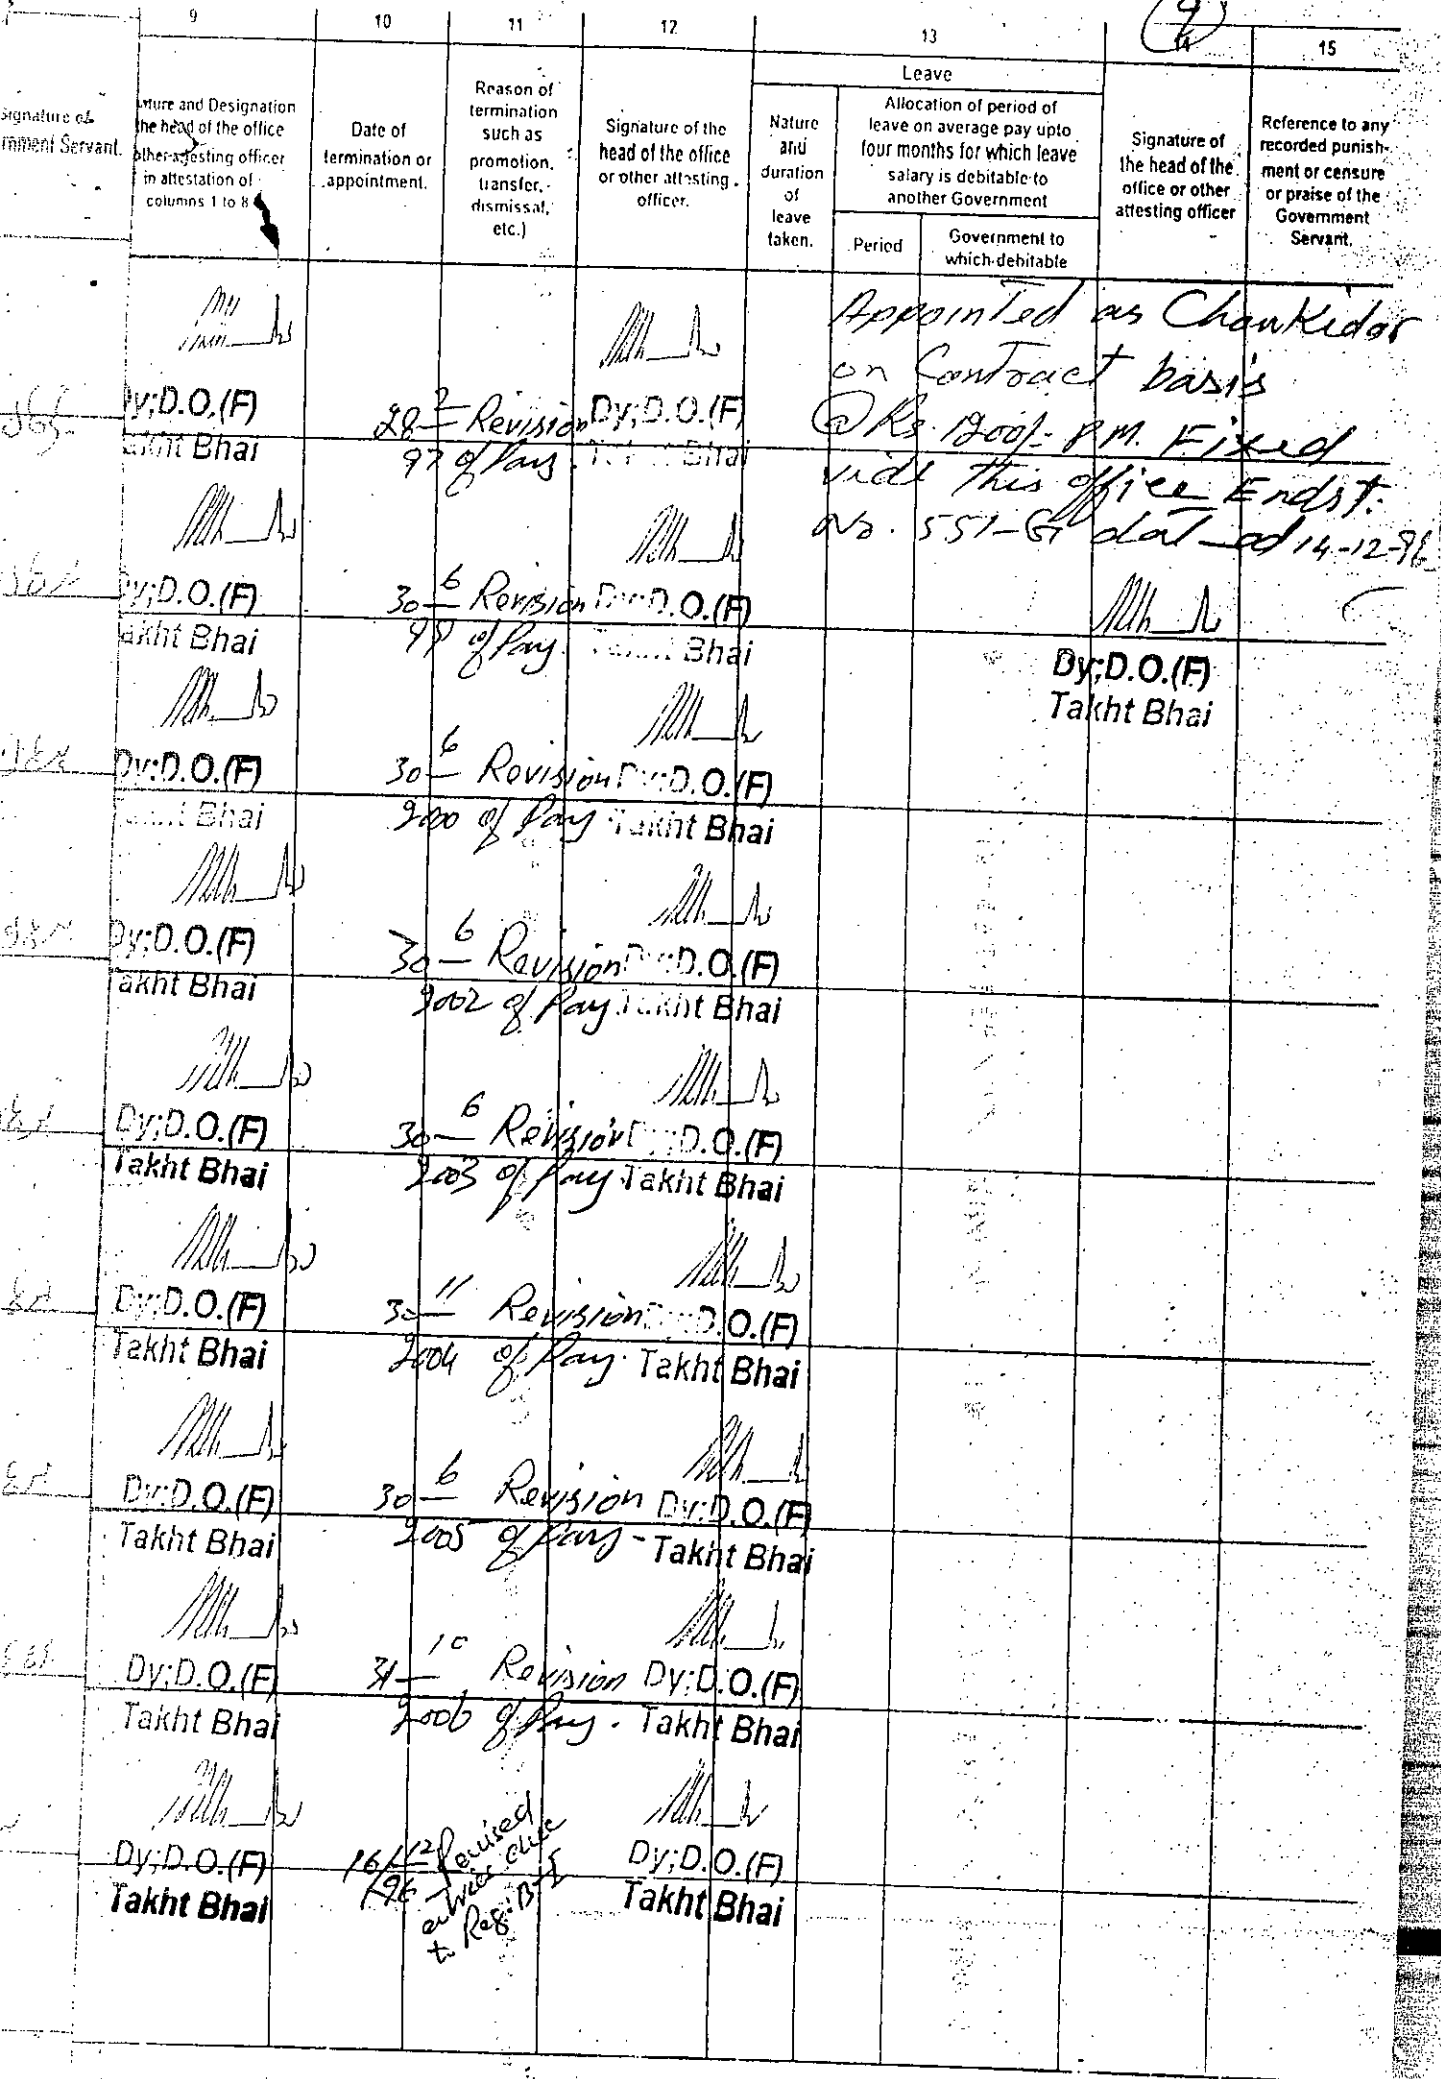 9 10 11 12 13 14 15
9
Signature of
rnment Servant.
ature and Designation
the head of the office
other attesting officer
in attestation of
columns 1 to 8
Date of
termination or
appointment.
Reason of
termination
such as
promotion,
transfer,
dismissal,
etc.)
Signature of the
head of the office
or other attesting
officer.
Leave
Nature
and
duration
of
leave
taken.
Allocation of period of
leave on average pay upto
four months for which leave
salary is debitable to
another Government
Period
Government to
which debitable
Signature of
the head of the
office or other
attesting officer
Reference to any
recorded punish-
ment or censure
or praise of the
Government
Servant.
Appointed as Chowkidar
on Contract basis
@ Rs. 1200/- P.M. Fixed
vide this office Endst.
No. 551-G dated 14-12-96
Dy;D.O.(F)
Takht Bhai
Dy;D.O.(F) 28-2 Revision Dy;D.O.(F)
akht Bhai 97 of Pay. Bhai
Dy;D.O.(F) 30-6 Revision Dy;D.O.(F)
akht Bhai of Pay. Bhai
Dy;D.O.(F) 30-6 Revision Dy;D.O.(F)
Bhai 2000 of Pay Takht Bhai
Dy;D.O.(F) 30-6 Revision D.O.(F)
akht Bhai 2002 of Pay Takht Bhai
Dy;D.O.(F) 30-6 Revision D.O.(F)
Takht Bhai 2003 of Pay Takht Bhai
Dy;D.O.(F) 30-11 Revision D.O.(F)
Takht Bhai 2004 of Pay. Takht Bhai
Dy;D.O.(F) 30-6 Revision Dy;D.O.(F)
Takht Bhai 2005 of Pay - Takht Bhai
Dy;D.O.(F) 31-10 Revision Dy;D.O.(F)
Takht Bhai 2006 of Pay. Takht Bhai
Dy;D.O.(F) 16/12 Revised Dy;D.O.(F)
Takht Bhai /96 entries due Takht Bhai
to Reg: B-I